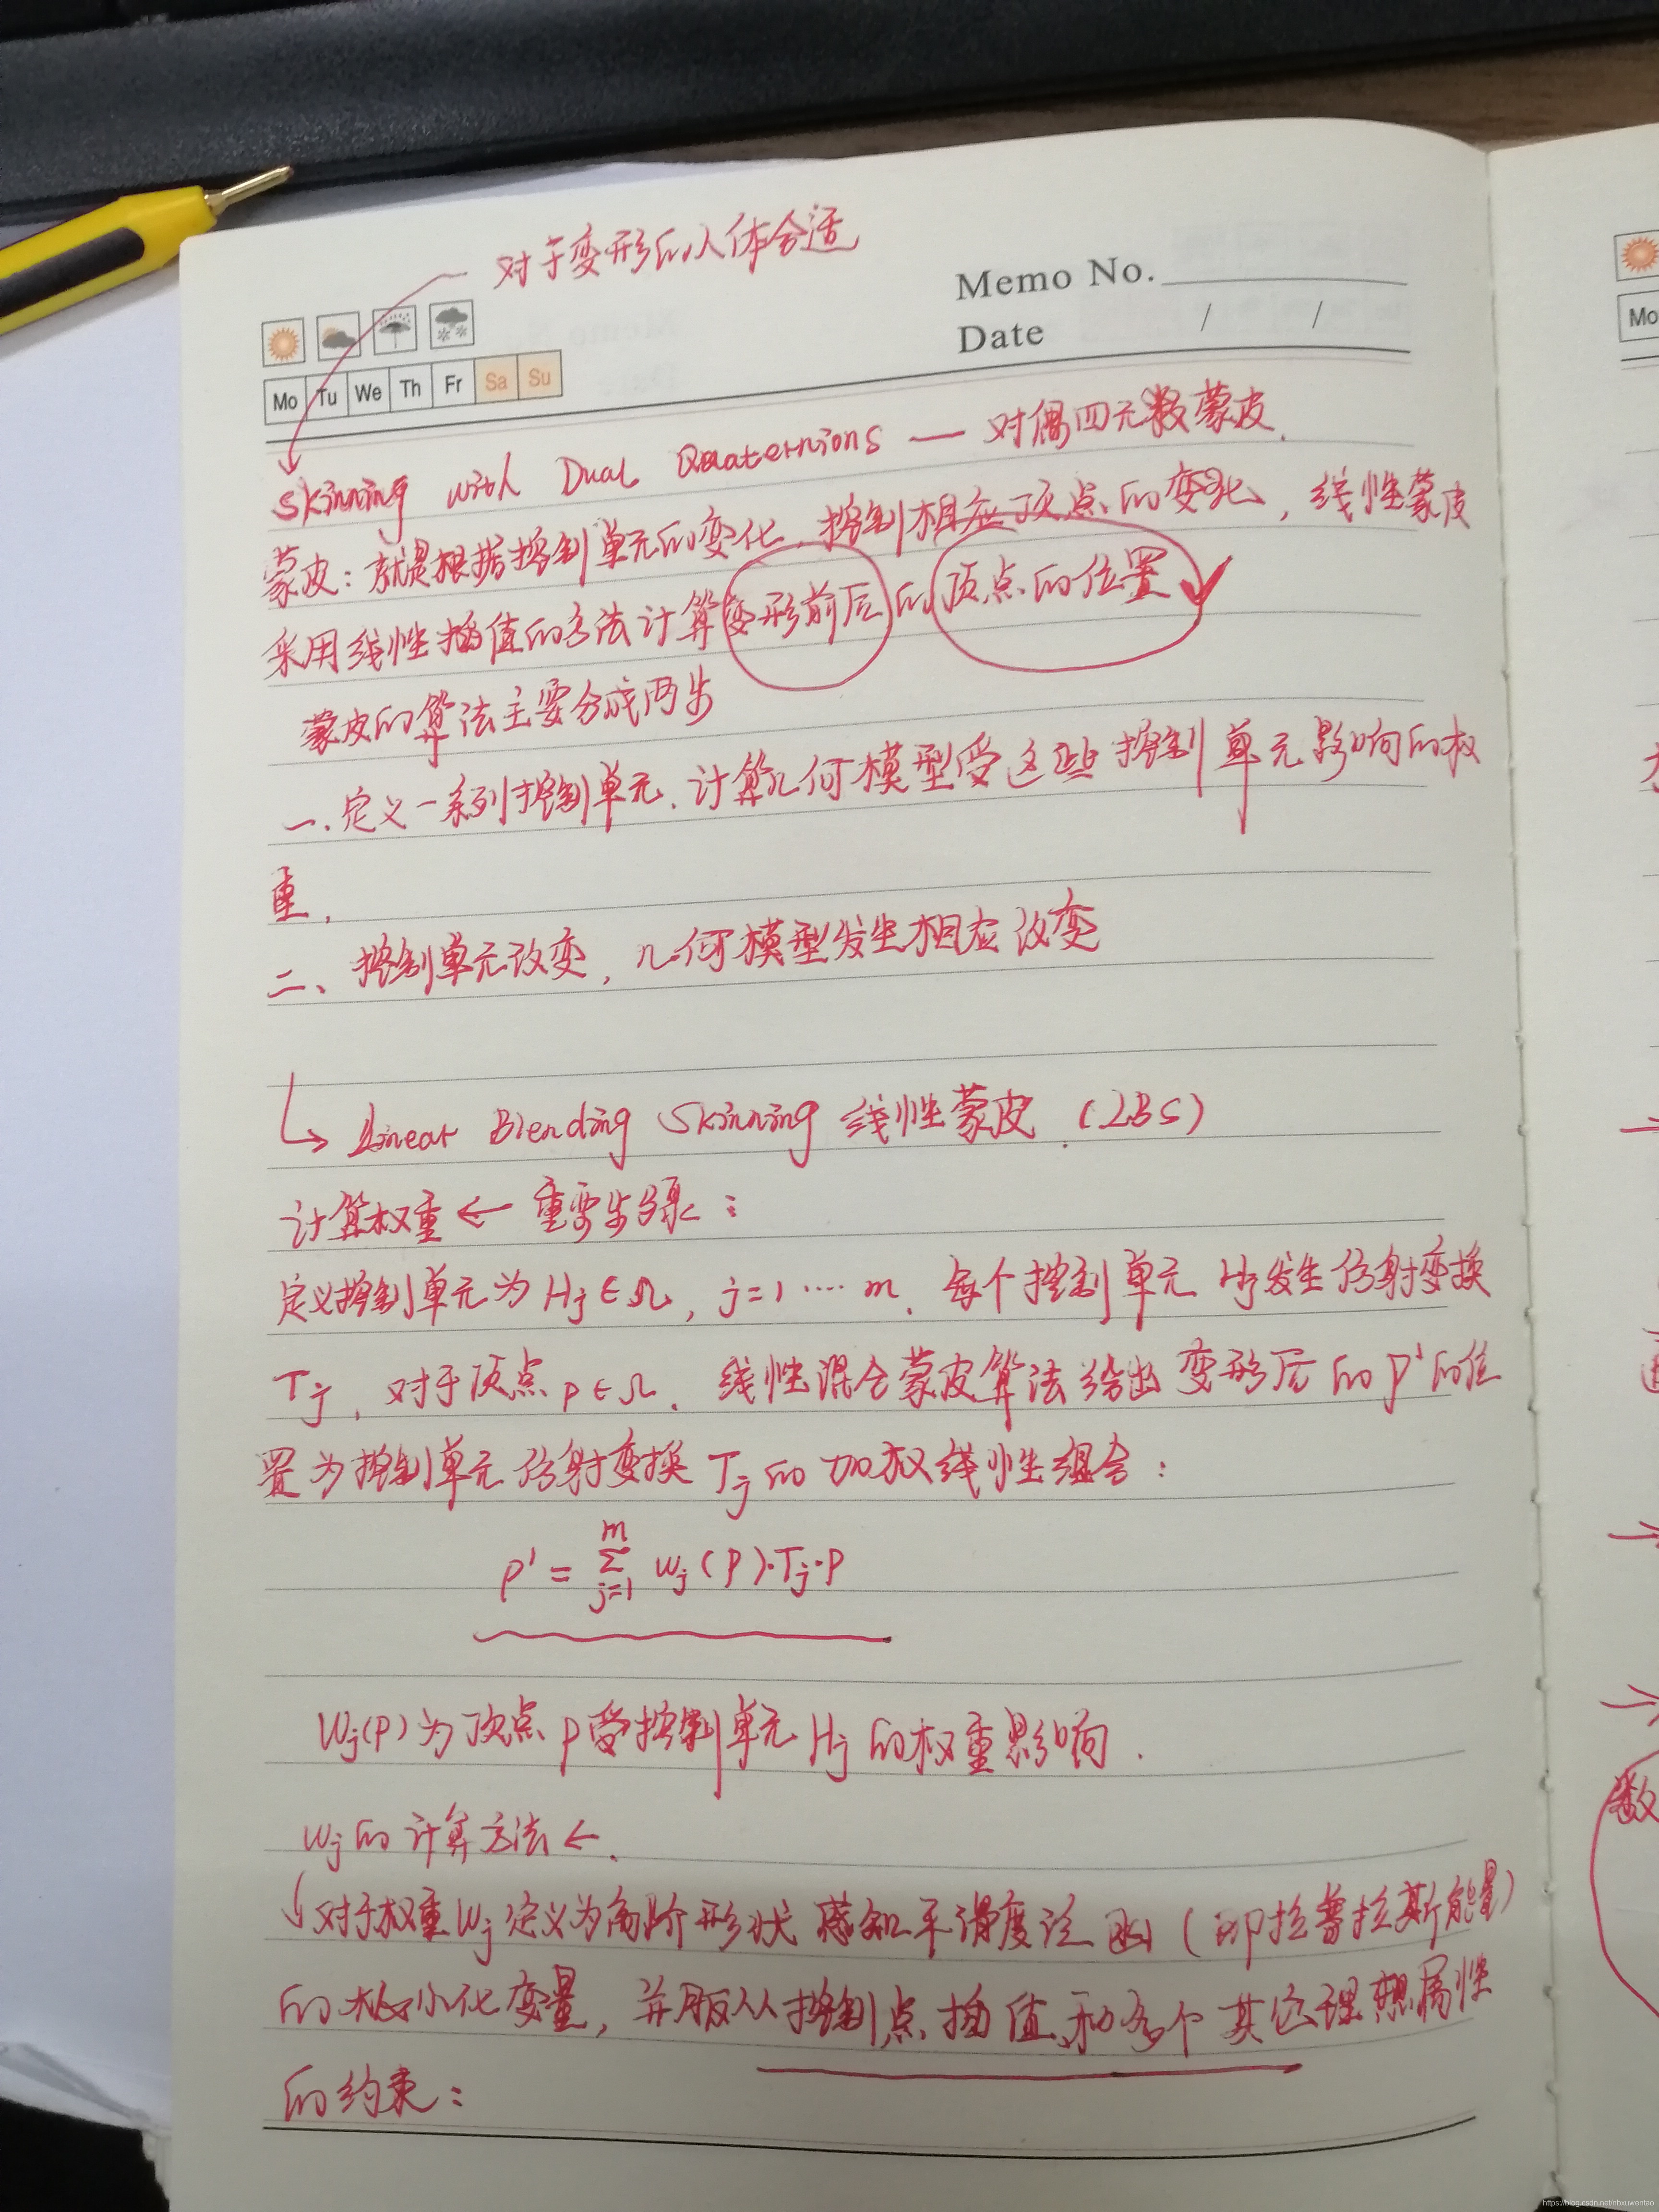 对于变形的人体合适
Memo No.
Date / /
Mo Tu We Th Fr Sa Su
Skinning with Dual Quaternions — 对偶四元数蒙皮.
蒙皮:就是根据控制单元的变化,控制相应顶点的变化,线性蒙皮
采用线性插值的方法计算变形前后的顶点的位置
蒙皮的算法主要分成两步
一、定义一系列控制单元.计算几何模型受这些控制单元影响的权
重.
二、控制单元改变,几何模型发生相应改变
↳ Linear Blending Skinning 线性蒙皮.(LBS)
计算权重 ← 重要步骤:
定义控制单元为 Hj∈Ω, j=1 …… m. 每个控制单元 Hj发生仿射变换
Tj, 对于顶点 p∈Ω. 线性混合蒙皮算法给出变形后的P'的位
置为控制单元仿射变换 Tj 的加权线性组合:
p' = Σ_{j=1}^{m} wj(p)·Tj·p
Wj(p)为顶点 p受控制单元 Hj 的权重影响.
wj的计算方法←.
↓对于权重Wj定义为高阶形状感知平滑度泛函(即拉普拉斯能量)
的最小化变量,并服从控制点插值和多个其它理想属性
的约束:
Mo
数
https://blog.csdn.net/nbxuwentao